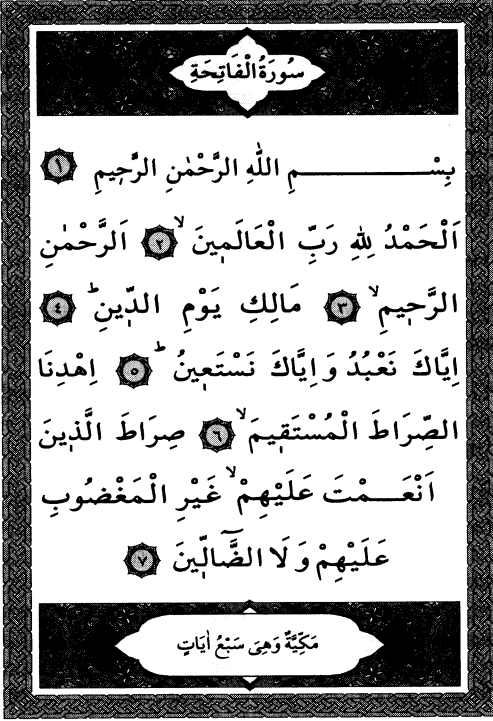 سُورَةُ الْفَاتِحَةِ
بِسْـــــــــــمِ اللّٰهِ الرَّحْمٰنِ الرَّحٖيمِ ﴿١﴾
اَلْحَمْدُ لِلّٰهِ رَبِّ الْعَالَمٖينَۙ ﴿٢﴾ اَلرَّحْمٰنِ
الرَّحٖيمِۙ ﴿٣﴾ مَالِكِ يَوْمِ الدّٖينِؕ ﴿٤﴾
اِيَّاكَ نَعْبُدُ وَاِيَّاكَ نَسْتَعٖينُؕ ﴿٥﴾ اِهْدِنَا
الصِّرَاطَ الْمُسْتَقٖيمَۙ ﴿٦﴾ صِرَاطَ الَّذٖينَ
اَنْعَـــمْتَ عَلَيْهِمْۙ غَيْرِ الْمَغْضُوبِ
عَلَيْهِمْ وَلَا الضَّٓالّٖينَ ﴿٧﴾
مَكِّيَّةٌ وَهِىَ سَبْعُ اٰيَاتٍ